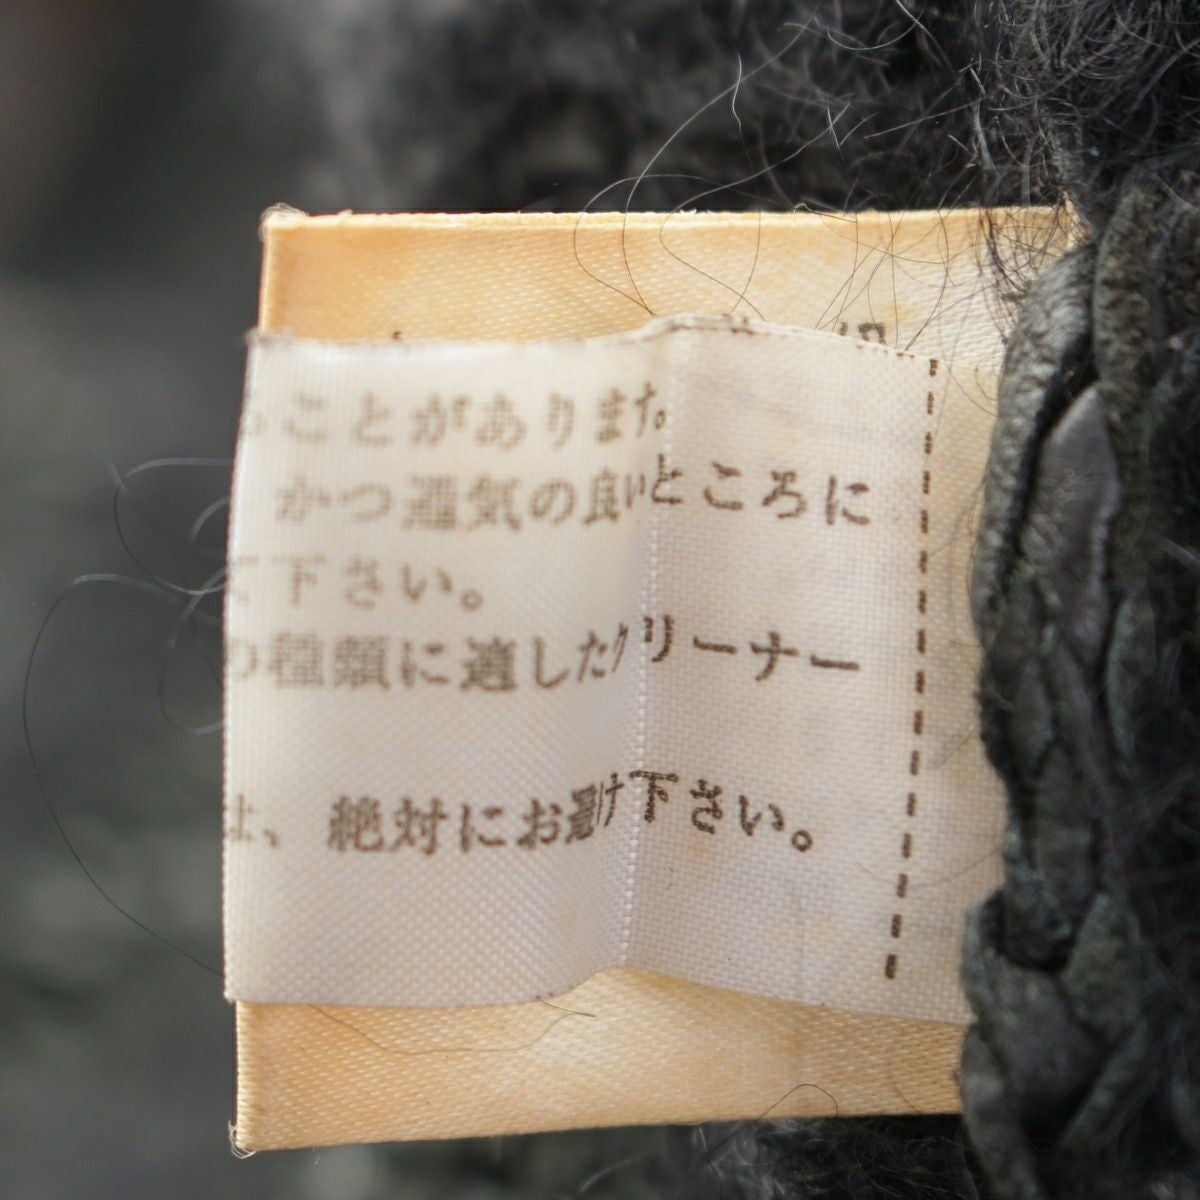 ことがあります。
かつ通気の良いところに
て下さい。
の種類に適したクリーナー
は、絶対にお避け下さい。